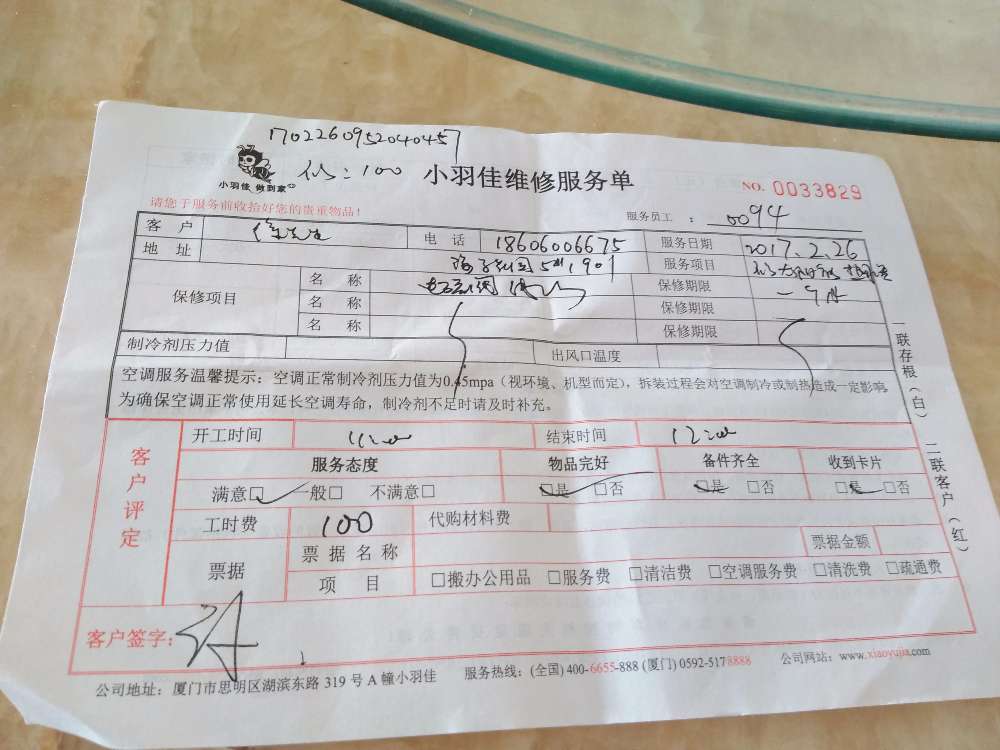 170226095204045７
小羽佳 做到家
100
小羽佳维修服务单
NO. 0033829
请您于服务前收拾好您的贵重物品!
服务员工 : 0094
客 户 电 话 18606006675 服务日期 2017.2.26
地 址 5 901 服务项目
保修项目 名 称 保修期限
名 称 保修期限
名 称 保修期限
制冷剂压力值 出风口温度
空调服务温馨提示:空调正常制冷剂压力值为0.45mpa(视环境、机型而定),拆装过程会对空调制冷或制热造成一定影响,
为确保空调正常使用延长空调寿命,制冷剂不足时请及时补充。
客户评定
开工时间 11:00 结束时间 12:00
服务态度 物品完好 备件齐全 收到卡片
满意□ 一般□ 不满意□ □是 □否 □是 □否 □是 □否
工时费 100 代购材料费
票据 票据名称 票据金额
项 目 □搬办公用品 □服务费 □清洁费 □空调服务费 □清洗费 □疏通费
客户签字:
一联存根(白) 二联客户(红)
公司地址:厦门市思明区湖滨东路 319 号 A 幢小羽佳 服务热线:(全国) 400-6655-888 (厦门) 0592-5178888 公司网站:www.xiaoyujia.com